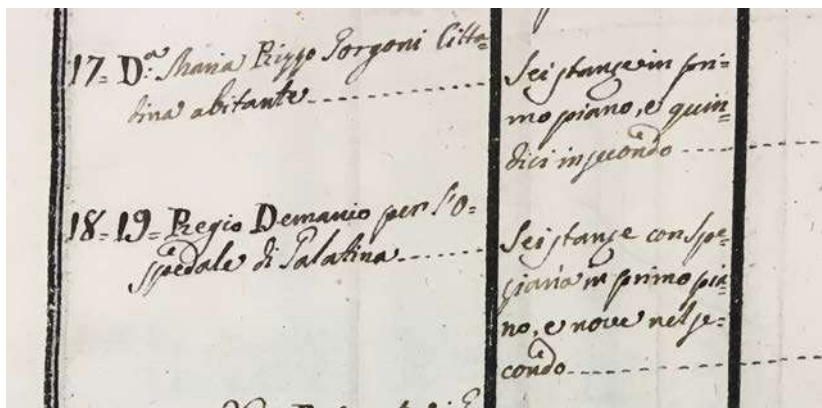 17= D.ª Maria Rizzo Gorgoni Citta=
dina abitante
Sei stanze in pri=
mo piano, e quin=
dici in secondo
18= 19= Regio Demanio per l'o=
spedale di Galatina
Sei stanze con Spe=
ziaria in primo pia=
no, e nove nel se=
condo